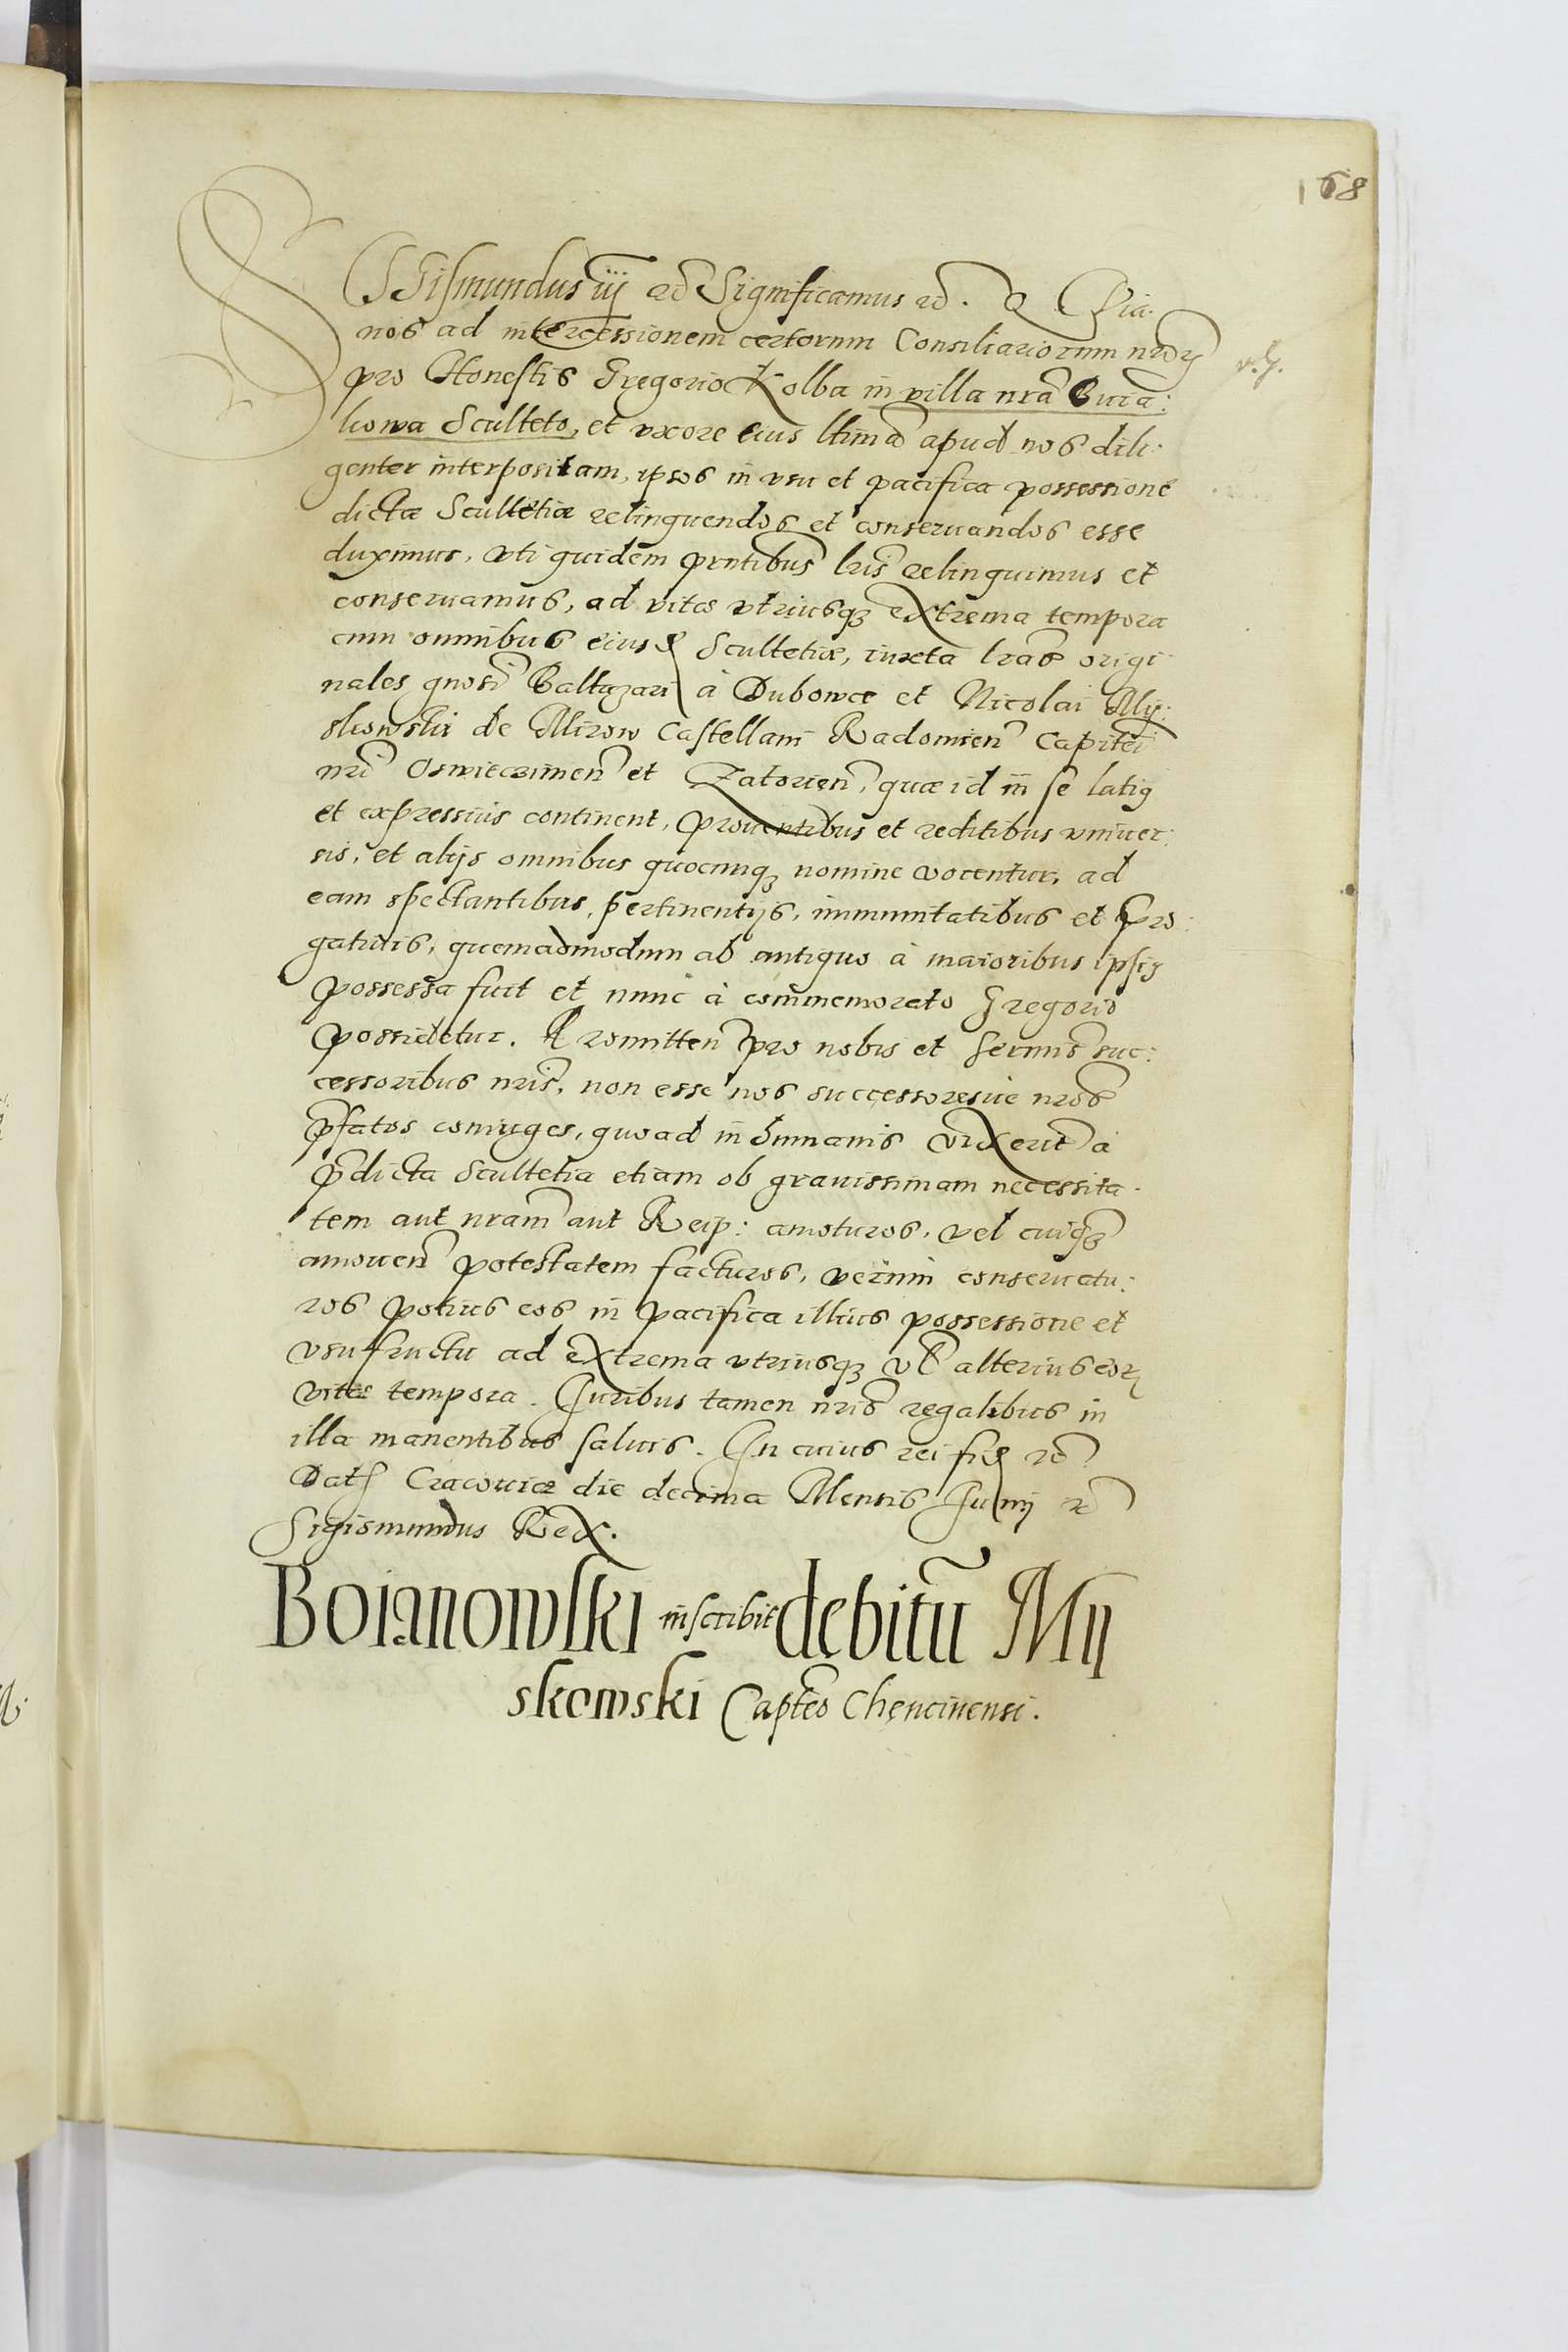 168
Sigismundus iij etc Significamus etc. Q Quia
nos ad intercessionem certorum Consiliariorum nrorum
pro Honestis Gregorio Kolba in villa nra
kowa Sculteto, et vxore eius ltima apud nos dili:
genter interpositam, ipsos in vsu et pacifica possessione
dictæ Scultetiæ relinquendos et conseruandos esse
duximus, vti quidem prntibus lris relinquimus et
conseruamus, ad vitæ vtriusq3 extrema tempora
cum omnibus eiusd Scultetiæ, iuxta lras origi
nales gnosi Baltazari à Dubowce et Nicolai My:
skowski de Mirow Castellani Radomien Capitei
nri Oswieczimen et Zatorien, quæ id in se latig
et expressius continent, prouentibus et reditibus vniuer:
sis, et alijs omnibus quocunq3 nomine vocentur, ad
eam spectantibus, pertinentijs, immunitatibus et pro:
gatiuis, quemadmodum ab antiquo à maioribus ipsig
possessa fuit et nunc à commemorato Gregorio
possidetur. Promitten pro nobis et Sermis suc:
cessoribus nris, non esse nos successoresue nros
pfatos coniuges, quoad in humanis vixerit à
pdicta Scultetia etiam ob grauissimam necessita:
tem aut nram aut Reip: amoturos, vel cuiq3
amouen potestatem facturos, verum conseruatu:
ros potius eos in pacifica illius possessione et
vsufructu ad extrema vtriusq3 vl alterius eor
vitæ tempora. Juribus tamen nris regalibus in
illa manentibus saluis. In cuius rei fid etc
Dat Cracouiæ die decima Mensis Junij etc
Sigismundus Rex.
Boianowski inscribit debitu Mij
skowski Capteo Chencinensi.